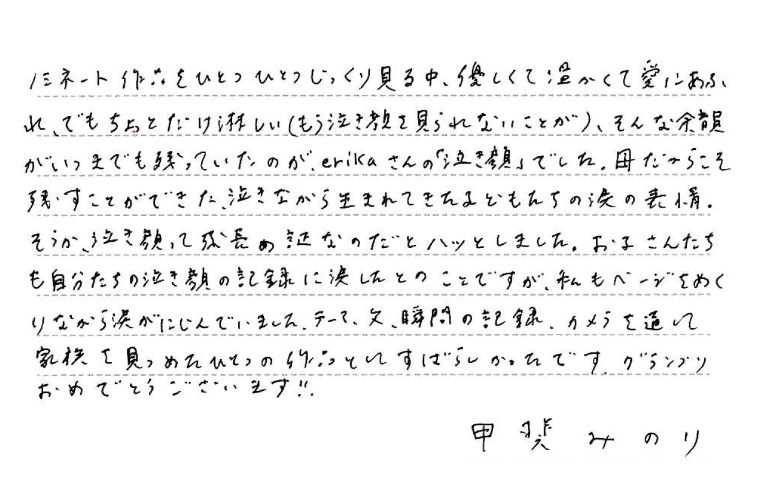 ノミネート作品をひとつひとつじっくり見る中、優しくて温かくて愛にあふ
れ、でもちょっとだけ淋しい(もう泣き顔を見られないことが)、そんな余韻
がいつまでも残っていたのが、erikaさんの「泣き顔」でした。母だからこそ
残すことができた、泣きながら生まれてきた子どもたちの涙の表情。
そうか、泣き顔って成長の証なのだとハッとしました。お子さんたち
も自分たちの泣き顔の記録に涙したとのことですが、私もページをめく
りながら涙がにじんでいました。テーマ、文、瞬間の記録、カメラを通して
家族を見つめたひとつの作品としてすばらしかったです。グランプリ
おめでとうございます!!
甲斐みのり